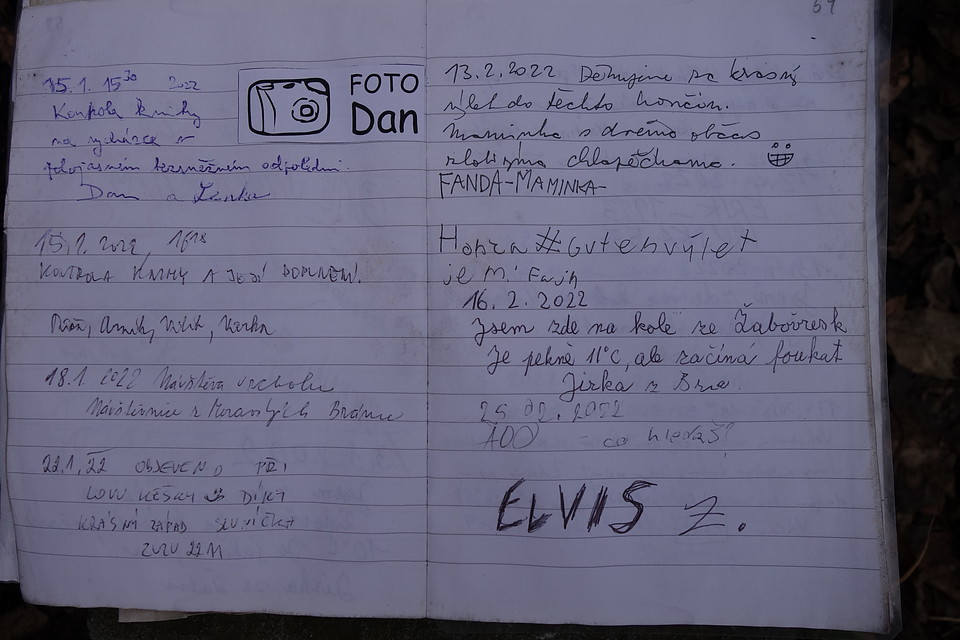 15.1. 15³⁰ 2022
Kontrola knihy
na vycházce v
polojasném bezsněžném odpoledni.
Dan a Lenka
FOTO
Dan
15.1.2022, 16¹⁸
KONTROLA KNIHY A JEJÍ DOPLNĚNÍ.
18.1 2022 Návštěva vrcholu
Návštěvnice z Moravských Bránic
22.1.22 OBJEVENO PŘI
LOVU KEŠKY DÍKY
KRÁSNÝ ZÁPAD SLUNÍČKA
ZUZU 2211
59
13.2.2022 Děkujeme za krásný
výlet do těchto končin.
Maminka s dvěma občas
zlobivýma chlapečkama.
FANDA-MAMINKA-
Hopra #Gutenvýlet
je
16.2.2022
Jsem zde na kole ze Žabovřesk
Je pěkně 11°C, ale začíná foukat
Jirka z Brna.
25 02.2022
AOO - co hledáš?
ELVIS Z.